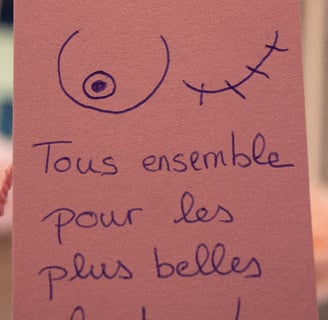 Tous ensemble
pour les
plus belles